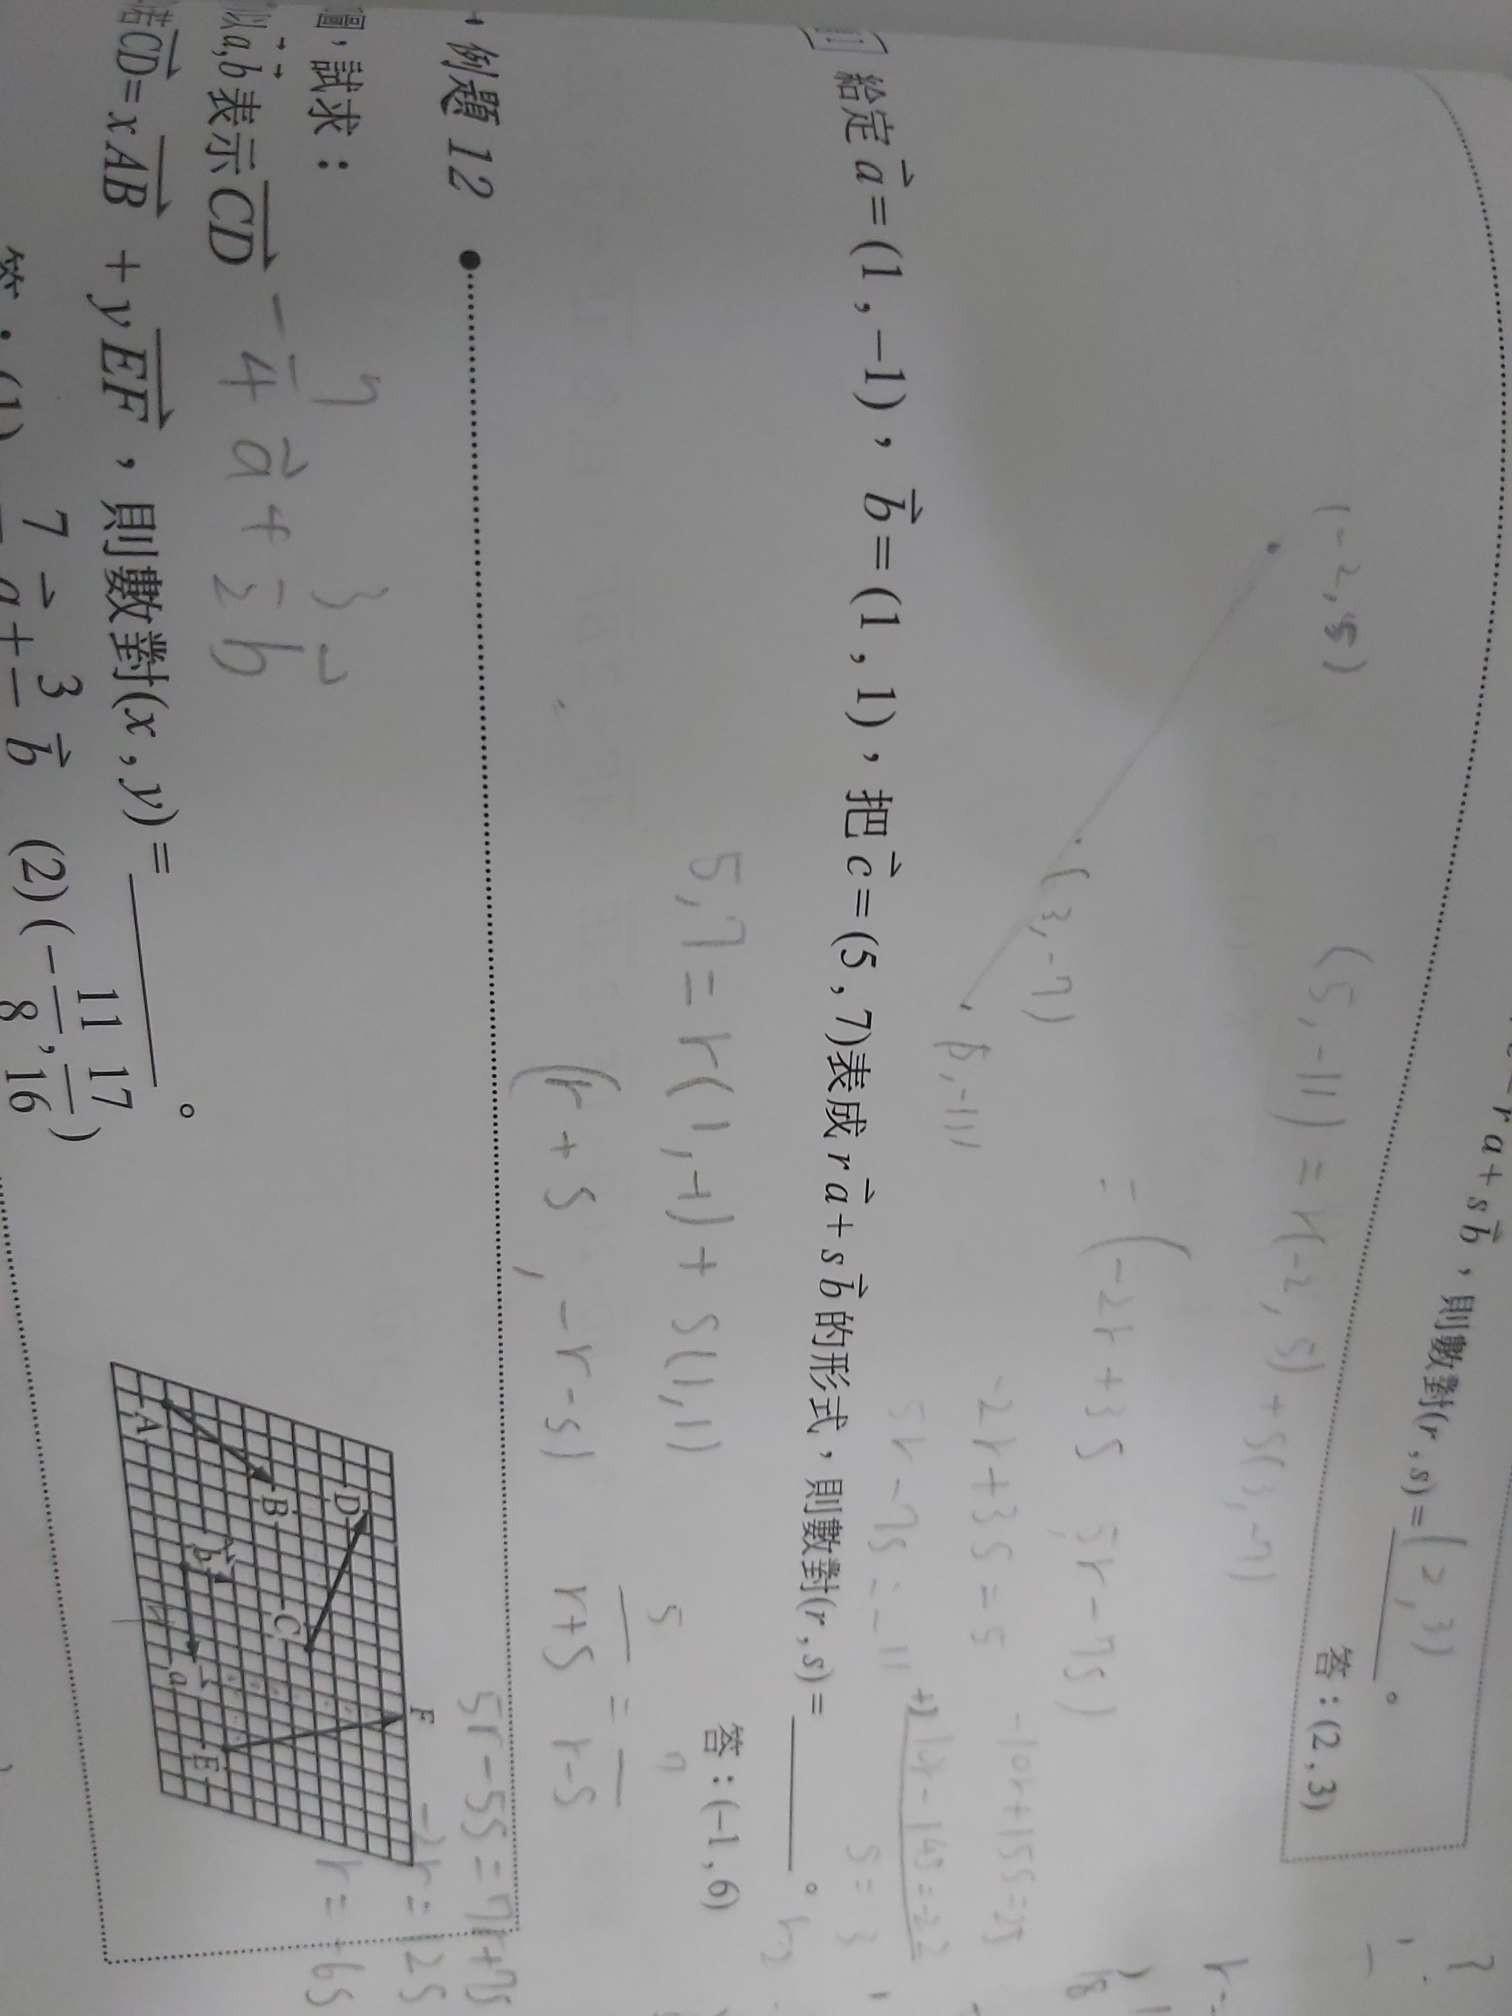 r a + s b，則數對(r , s) = (2,3) 。
答：(2 , 3)
(-2, 5)
(5, -11) = r(-2, 5) + s(3, -7)
= (-2r + 3s 5r - 7s)
(3, -7)
-2r + 3s = 5
5r - 7s = -11
s = 3
給定 a = (1 , −1)，b = (1 , 1)，把 c = (5 , 7)表成 r a + s b 的形式，則數對(r , s) = ________。
答：(−1 , 6)
5,7 = r(1,-1) + s(1,1)
(r + s , -r - s)
5 = 7
r+s r-s
5r - 5s = 7r + 7s
-2r = 12s
r = -6s
例題 12
圖，試求：
以 a, b 表示 CD - 7/4 a + 3/2 b
若 CD = x AB + y EF，則數對(x , y) = ________。
答：(1) 7 a + 3 b (2) (− 11/8 , 17/16)
A
B
D
C
b
a
E
F